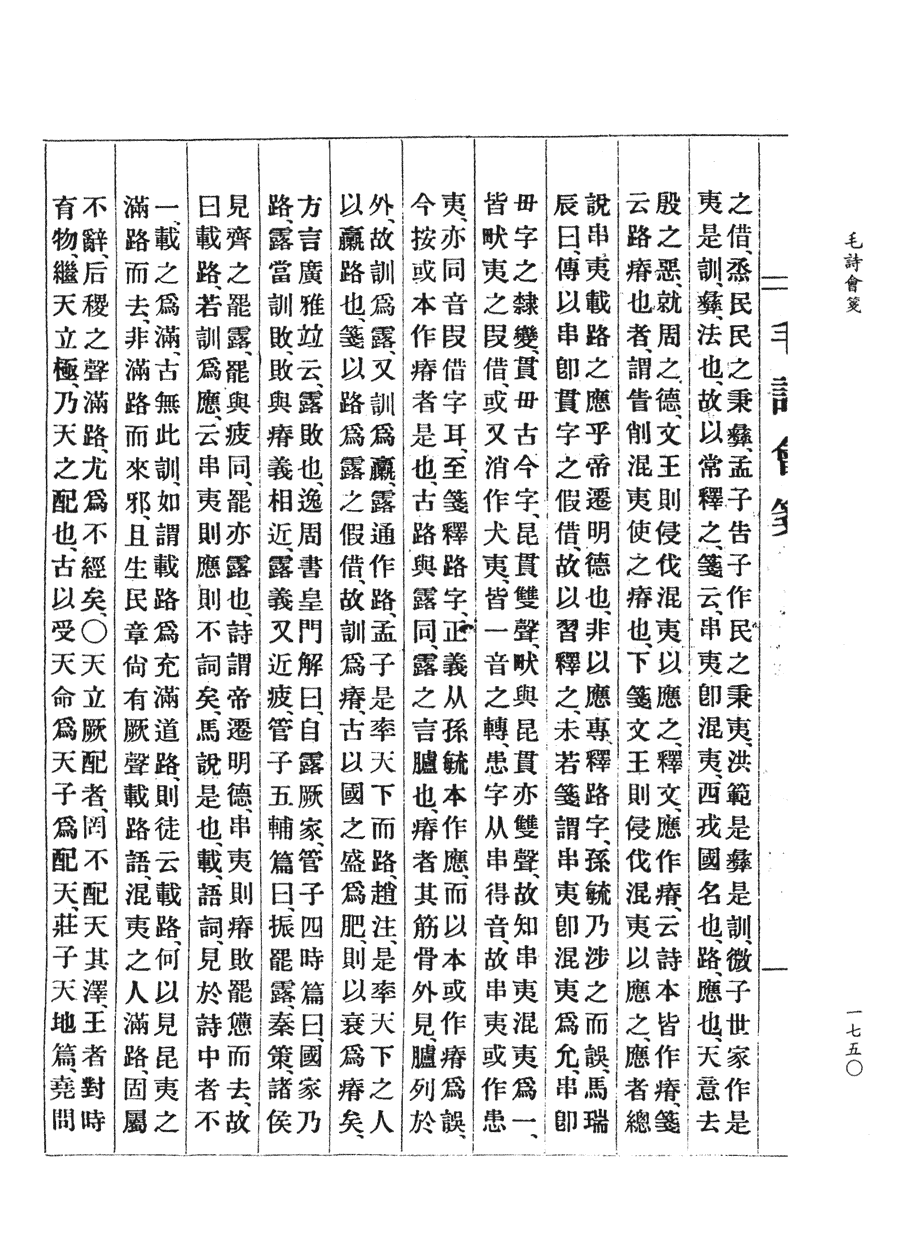 毛詩會箋
一七五〇
毛詩會箋
之借、烝民民之秉彝、孟子告子作民之秉夷、洪範是彝是訓、微子世家作是
夷是訓、彝、法也、故以常釋之、箋云、串夷卽混夷、西戎國名也、路、應也、天意去
殷之惡、就周之德、文王則侵伐混夷、以應之、釋文、應作瘠、云詩本皆作瘠、箋
云路瘠也者、謂眚削混夷使之瘠也、下箋文王則侵伐混夷以應之、應者總
說串夷載路之應乎帝遷明德也、非以應專釋路字、孫毓乃涉之而誤、馬瑞
辰曰、傳以串卽貫字之假借、故以習釋之、未若箋謂串夷卽混夷爲允、串卽
毌字之隸變、貫毌古今字、昆貫雙聲、畎與昆貫亦雙聲、故知串夷混夷爲一、
皆畎夷之叚借、或又消作犬夷、皆一音之轉、患字从串得音、故串夷或作患
夷、亦同音叚借字耳、至箋釋路字、正義从孫毓本作應、而以本或作瘠爲誤、
今按或本作瘠者是也、古路與露同、露之言臚也、瘠者其筋骨外見、臚列於
外、故訓爲露、又訓爲羸、露通作路、孟子是率天下而路、趙注、是率天下之人
以羸路也、箋以路爲露之假借、故訓爲瘠、古以國之盛爲肥、則以衰爲瘠矣、
方言廣雅竝云、露敗也、逸周書皇門解曰、自露厥家、管子四時篇曰、國家乃
路、露當訓敗、敗與瘠義相近、露義又近疲、管子五輔篇曰、振罷露、秦策、諸侯
見齊之罷露、罷與疲同、罷亦露也、詩謂帝遷明德、串夷則瘠敗罷憊而去、故
曰載路、若訓爲應、云串夷則應則不詞矣、馬說是也、載、語詞、見於詩中者不
一、載之爲滿、古無此訓、如謂載路爲充滿道路、則徒云載路、何以見昆夷之
滿路而去、非滿路而來邪、且生民章尙有厥聲載路語、混夷之人滿路、固屬
不辭、后稷之聲滿路、尤爲不經矣、〇天立厥配者、罔不配天其澤、王者對時
育物、繼天立極、乃天之配也、古以受天命爲天子爲配天、莊子天地篇、堯問